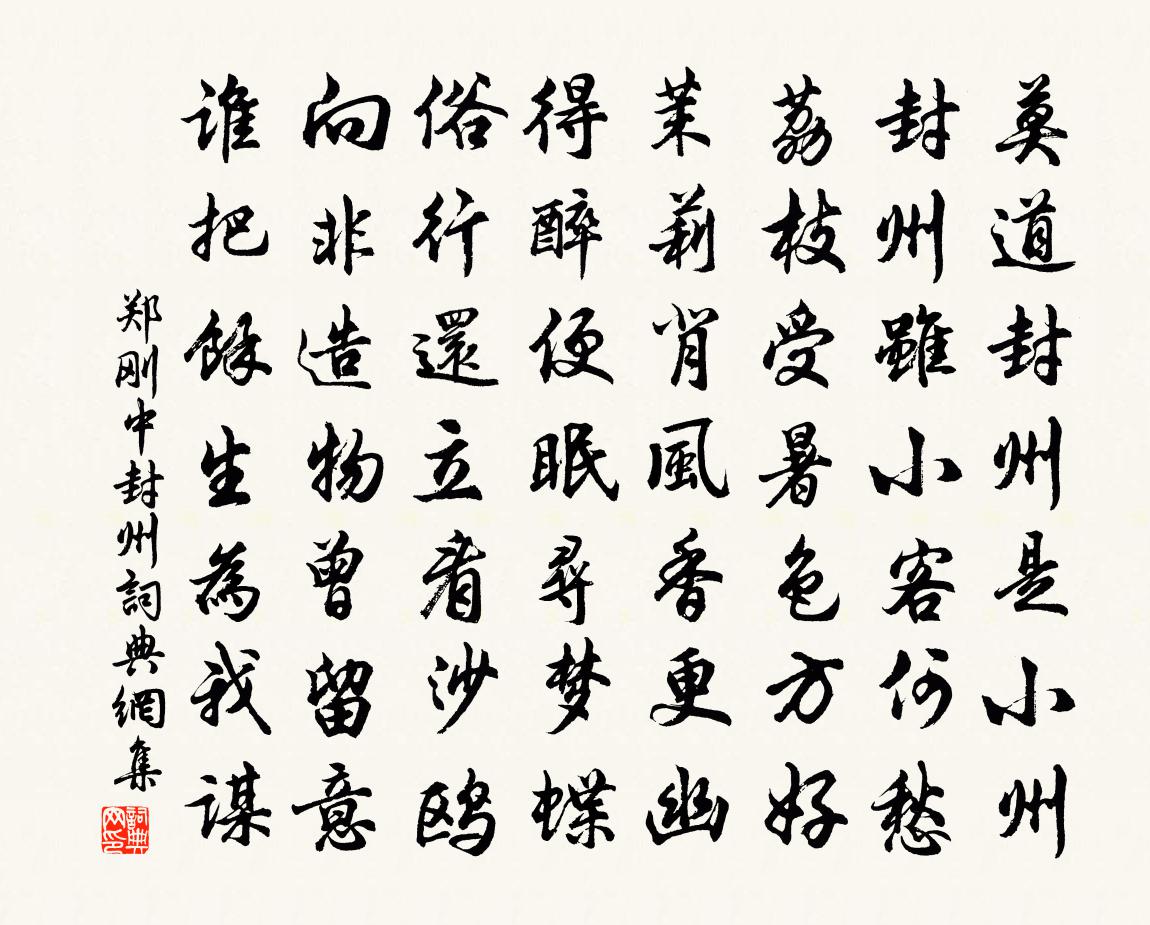 莫道封州是小州
封州雖小客何愁
荔枝受暑色方好
茉莉背風香更幽
得醉便眠尋梦蝶
俗行還立看沙鸥
向非造物曾留意
谁把餘生為我谋
郑刚中封州詞典網集
詞典网印